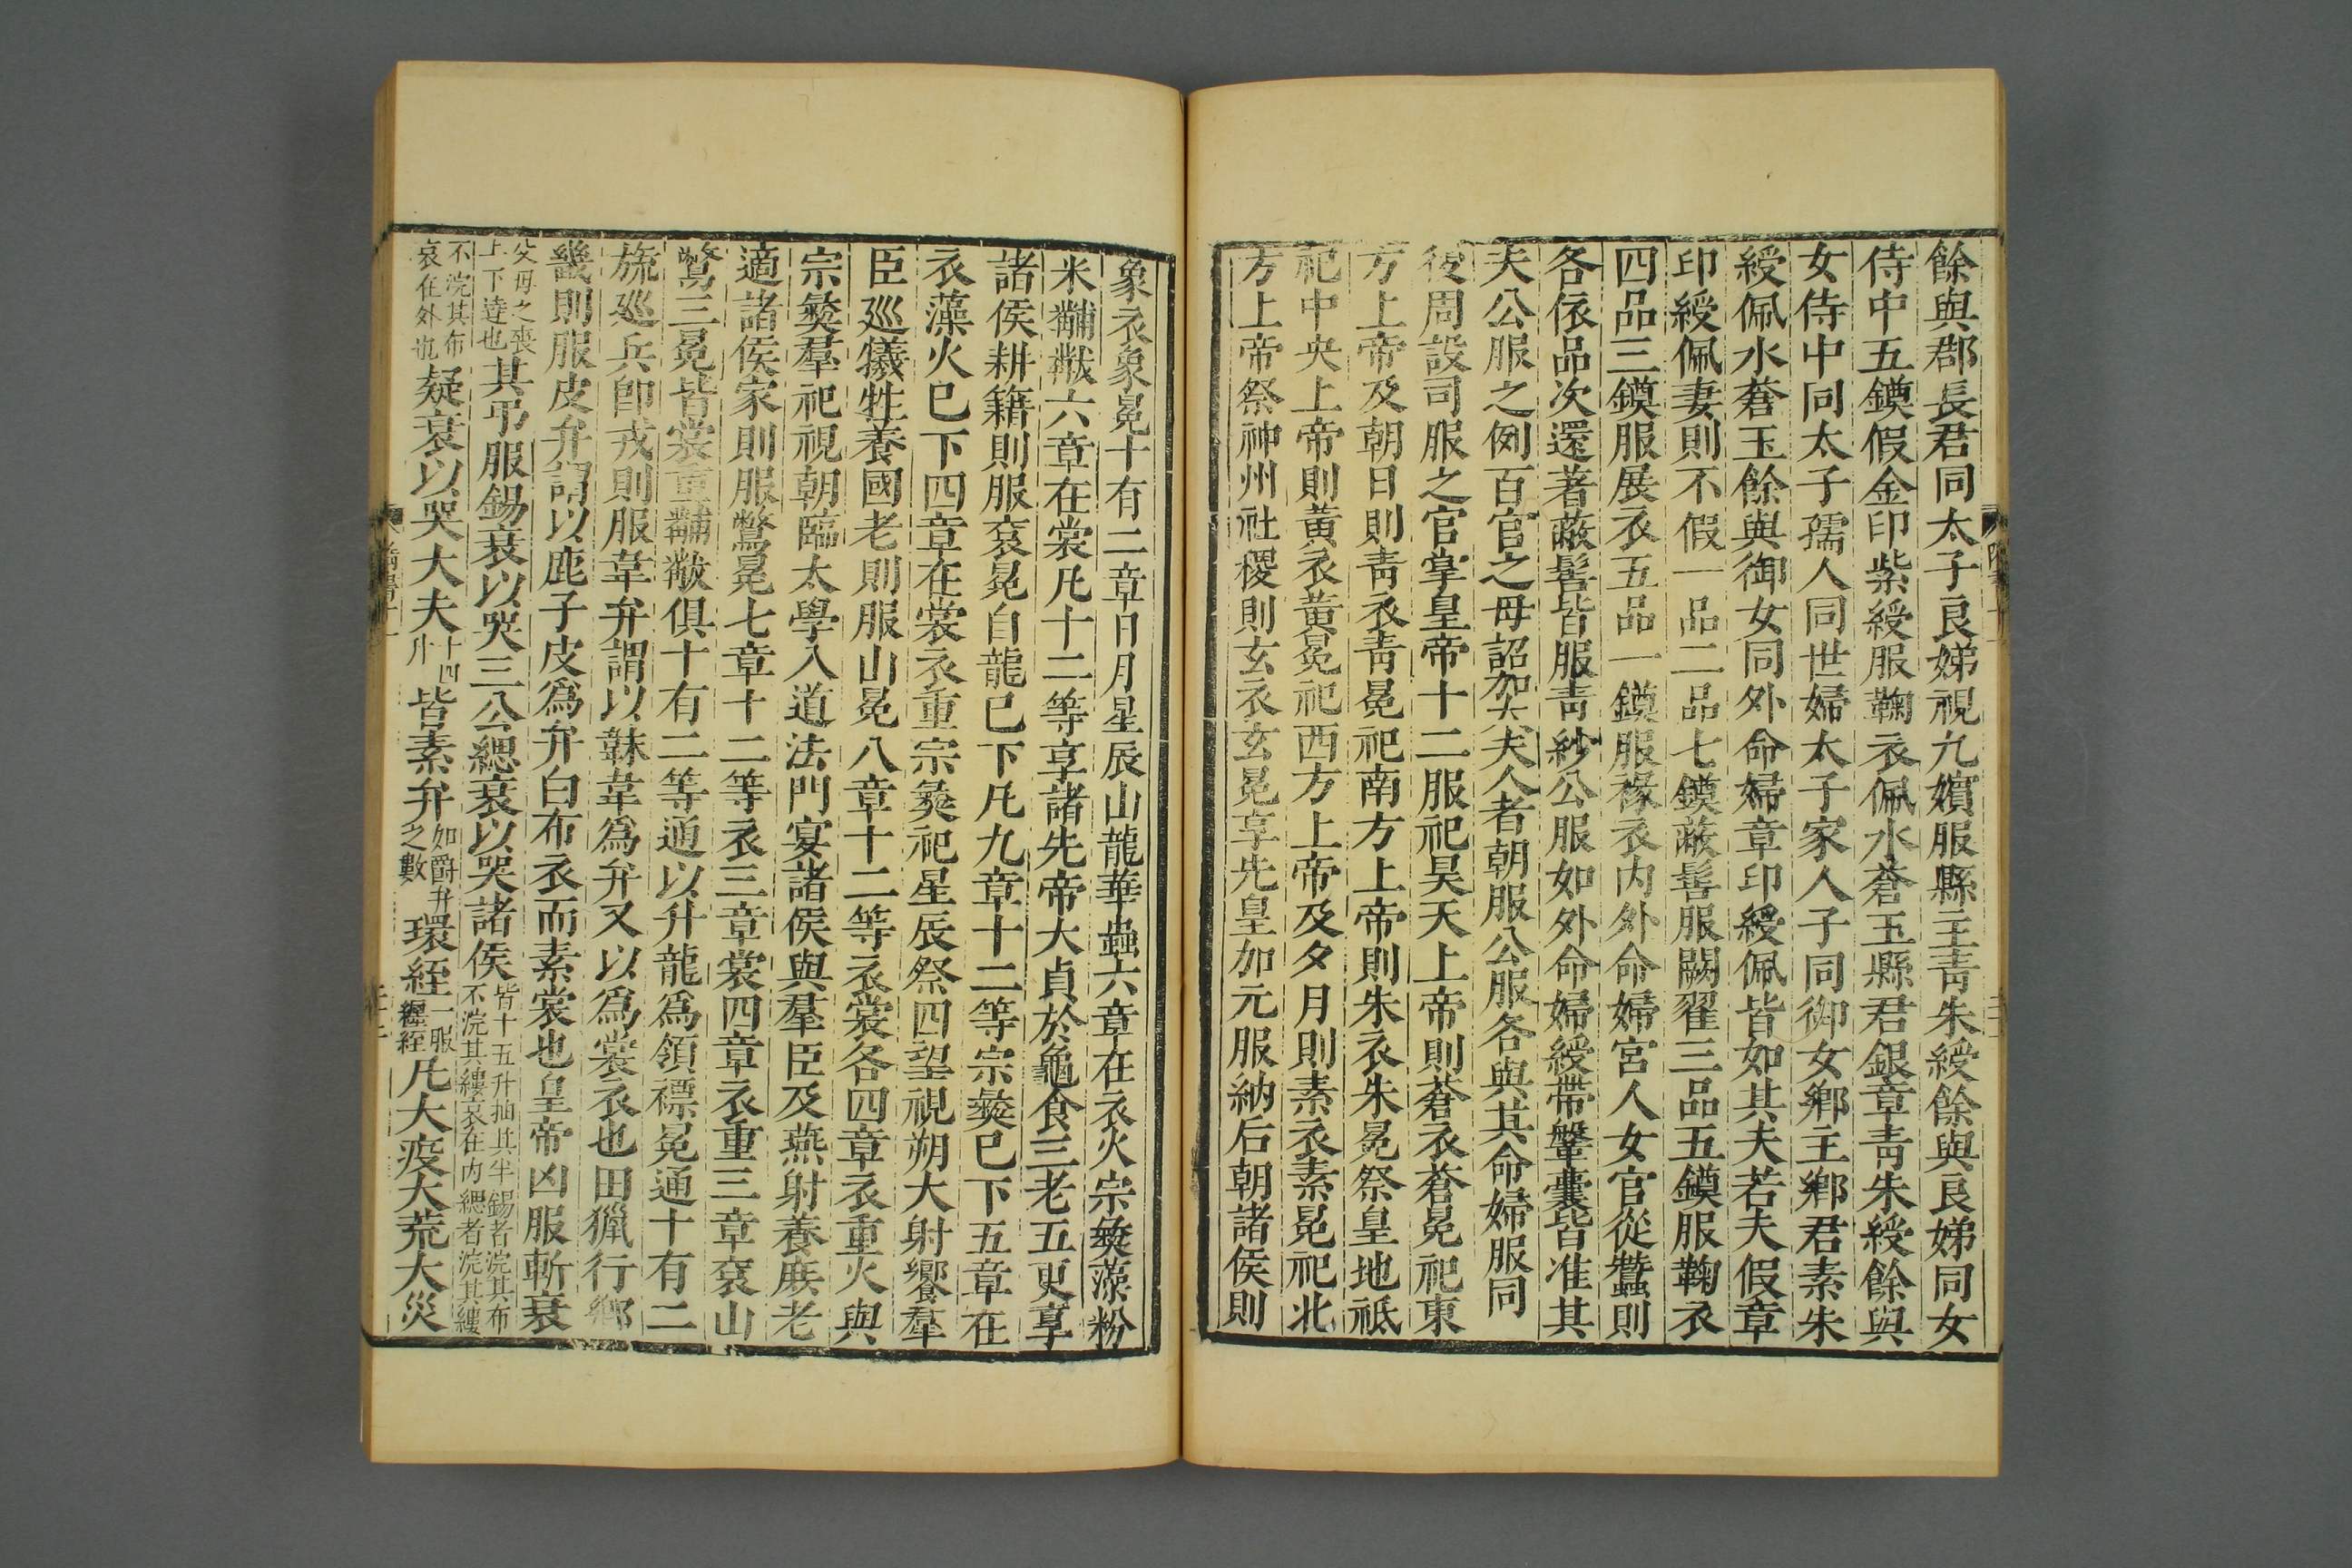 餘與郡長君同太子良娣視九嬪服縣主靑朱綬餘與良娣同女
侍中五鐷假金印紫綬服鞠衣佩水蒼玉縣君銀章靑朱綬餘與
女侍中同太子孺人同世婦太子家人子同御女鄉主鄉君素朱
綬佩水蒼玉餘與御女同外命婦章印綬佩皆如其夫若夫假章
印綬佩妻則不假一品二品七鐷蔽髻服闕翟三品五鐷服鞠衣
四品三鐷服展衣五品一鐷服褖衣内外命婦宮人女官從蠶則
各依品次還著蔽髻皆服靑紗公服如外命婦綬帶鞶囊皆准其
夫公服之例百官之母詔加太夫人者朝服公服各與其命婦服同
後周設司服之官掌皇帝十二服祀昊天上帝則蒼衣蒼冕祀東
方上帝及朝日則靑衣靑冕祀南方上帝則朱衣朱冕祭皇地祗
祀中央上帝則黃衣黃冕祀西方上帝及夕月則素衣素冕祀北
方上帝祭神州社稷則玄衣玄冕享先皇加元服納后朝諸侯則
象衣象冕十有二章日月星辰山龍華蟲六章在衣火宗彜藻粉
米黼黻六章在裳凡十二等享諸先帝大貞於龜食三老五更享
諸侯耕籍則服衮冕自龍已下凡九章十二等宗彜已下五章在
衣藻火已下四章在裳衣重宗彜祀星辰祭四望視朔大射饗羣
臣巡犧牲養國老則服山冕八章十二等衣裳各四章衣重火與
宗彜羣祀視朝臨太學入道法門宴諸侯與羣臣及燕射養庶老
適諸侯家則服鷩冕七章十二等衣三章裳四章衣重三章衮山
鷩三冕皆裳重黼黻俱十有二等通以升龍爲領褾冕通十有二
旒巡兵卽戎則服韋弁謂以韎韋爲弁又以爲裳衣也田獵行鄉
畿則服皮弁謂以鹿子皮爲弁白布衣而素裳也皇帝凶服斬衰
父母之喪上下達也其弔服錫衰以哭三公緦衰以哭諸侯皆十五升抽其半錫者浣其布不浣其縷哀在内緦者浣其縷
不浣其布哀在外也疑衰以哭大夫十四升皆素弁如爵弁之數環絰一服纒絰凡大疫大荒大災